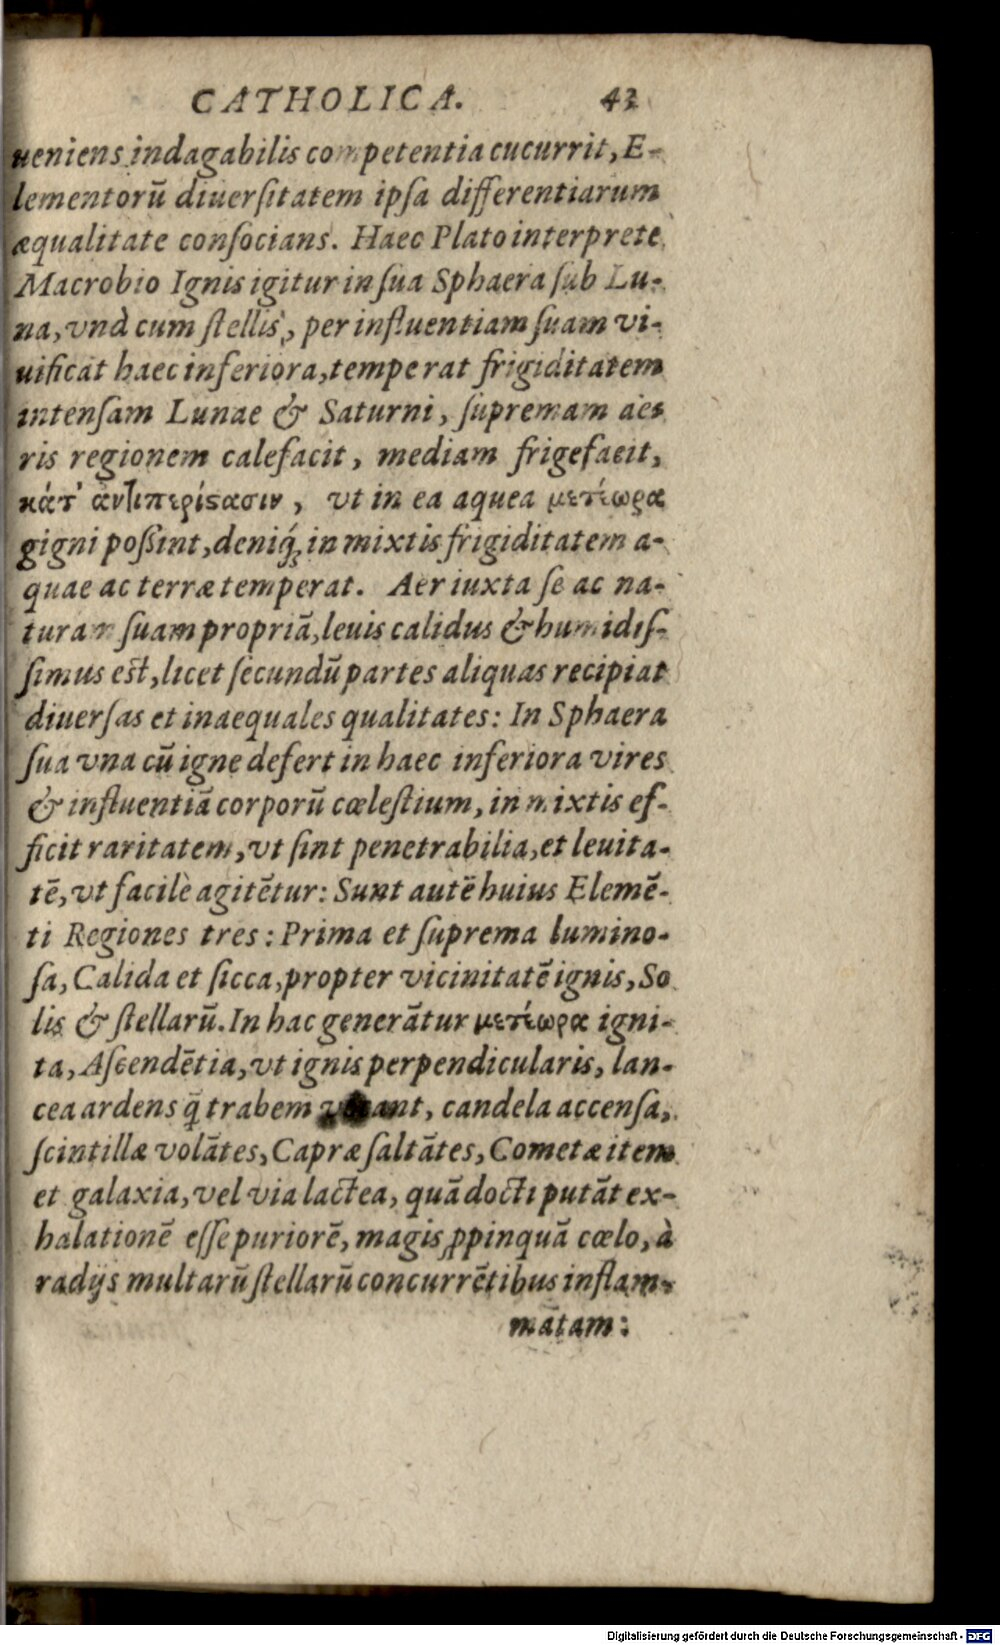 CATHOLICA. 43
ueniens indagabilis competentia cucurrit, E-
lementorū diuerſitatem ipſa differentiarum
æqualitate conſocians. Haec Plato interprete
Macrobio Ignis igitur in ſua Sphaera ſub Lu-
na, vnà cum ſtellis, per influentiam ſuam vi-
uificat haec inferiora, temperat frigiditatem
intenſam Lunae & Saturni, ſupremam aë-
ris regionem calefacit, mediam frigefacit,
κάτ' ἀντιπερίϛασιν, vt in ea aquea μετέωρα
gigni poßint, deniq́;, in mixtis frigiditatem a-
quae ac terræ temperat. Aer iuxta ſe ac na-
turam ſuam propriā, leuis calidus & humidiſ-
ſimus eſt, licet ſecundū partes aliquas recipiat
diuerſas et inaequales qualitates: In Sphaera
ſua vna cū igne defert in haec inferiora vires
& influentiā corporū cœleſtium, in mixtis ef-
ficit raritatem, vt ſint penetrabilia, et leuita-
tē, vt facilè agitētur: Sunt autē huius Elemē-
ti Regiones tres: Prima et ſuprema lumino-
ſa, Calida et ſicca, propter vicinitatē ignis, So
lis & ſtellarū. In hac generātur μετέωρα igni-
ta, Aſcendētia, vt ignis perpendicularis, lan-
cea ardens q̄ trabem vocant, candela accenſa,
ſcintillæ volātes, Capræ ſaltātes, Cometæ item
et galaxia, vel via lactea, quā docti putāt ex-
halationē eſſe puriorē, magis ꝓpinquā cœlo, à
radijs multarū ſtellarū concurrētibus inflam-
mātam:
Digitalisierung gefördert durch die Deutsche Forschungsgemeinschaft - DFG